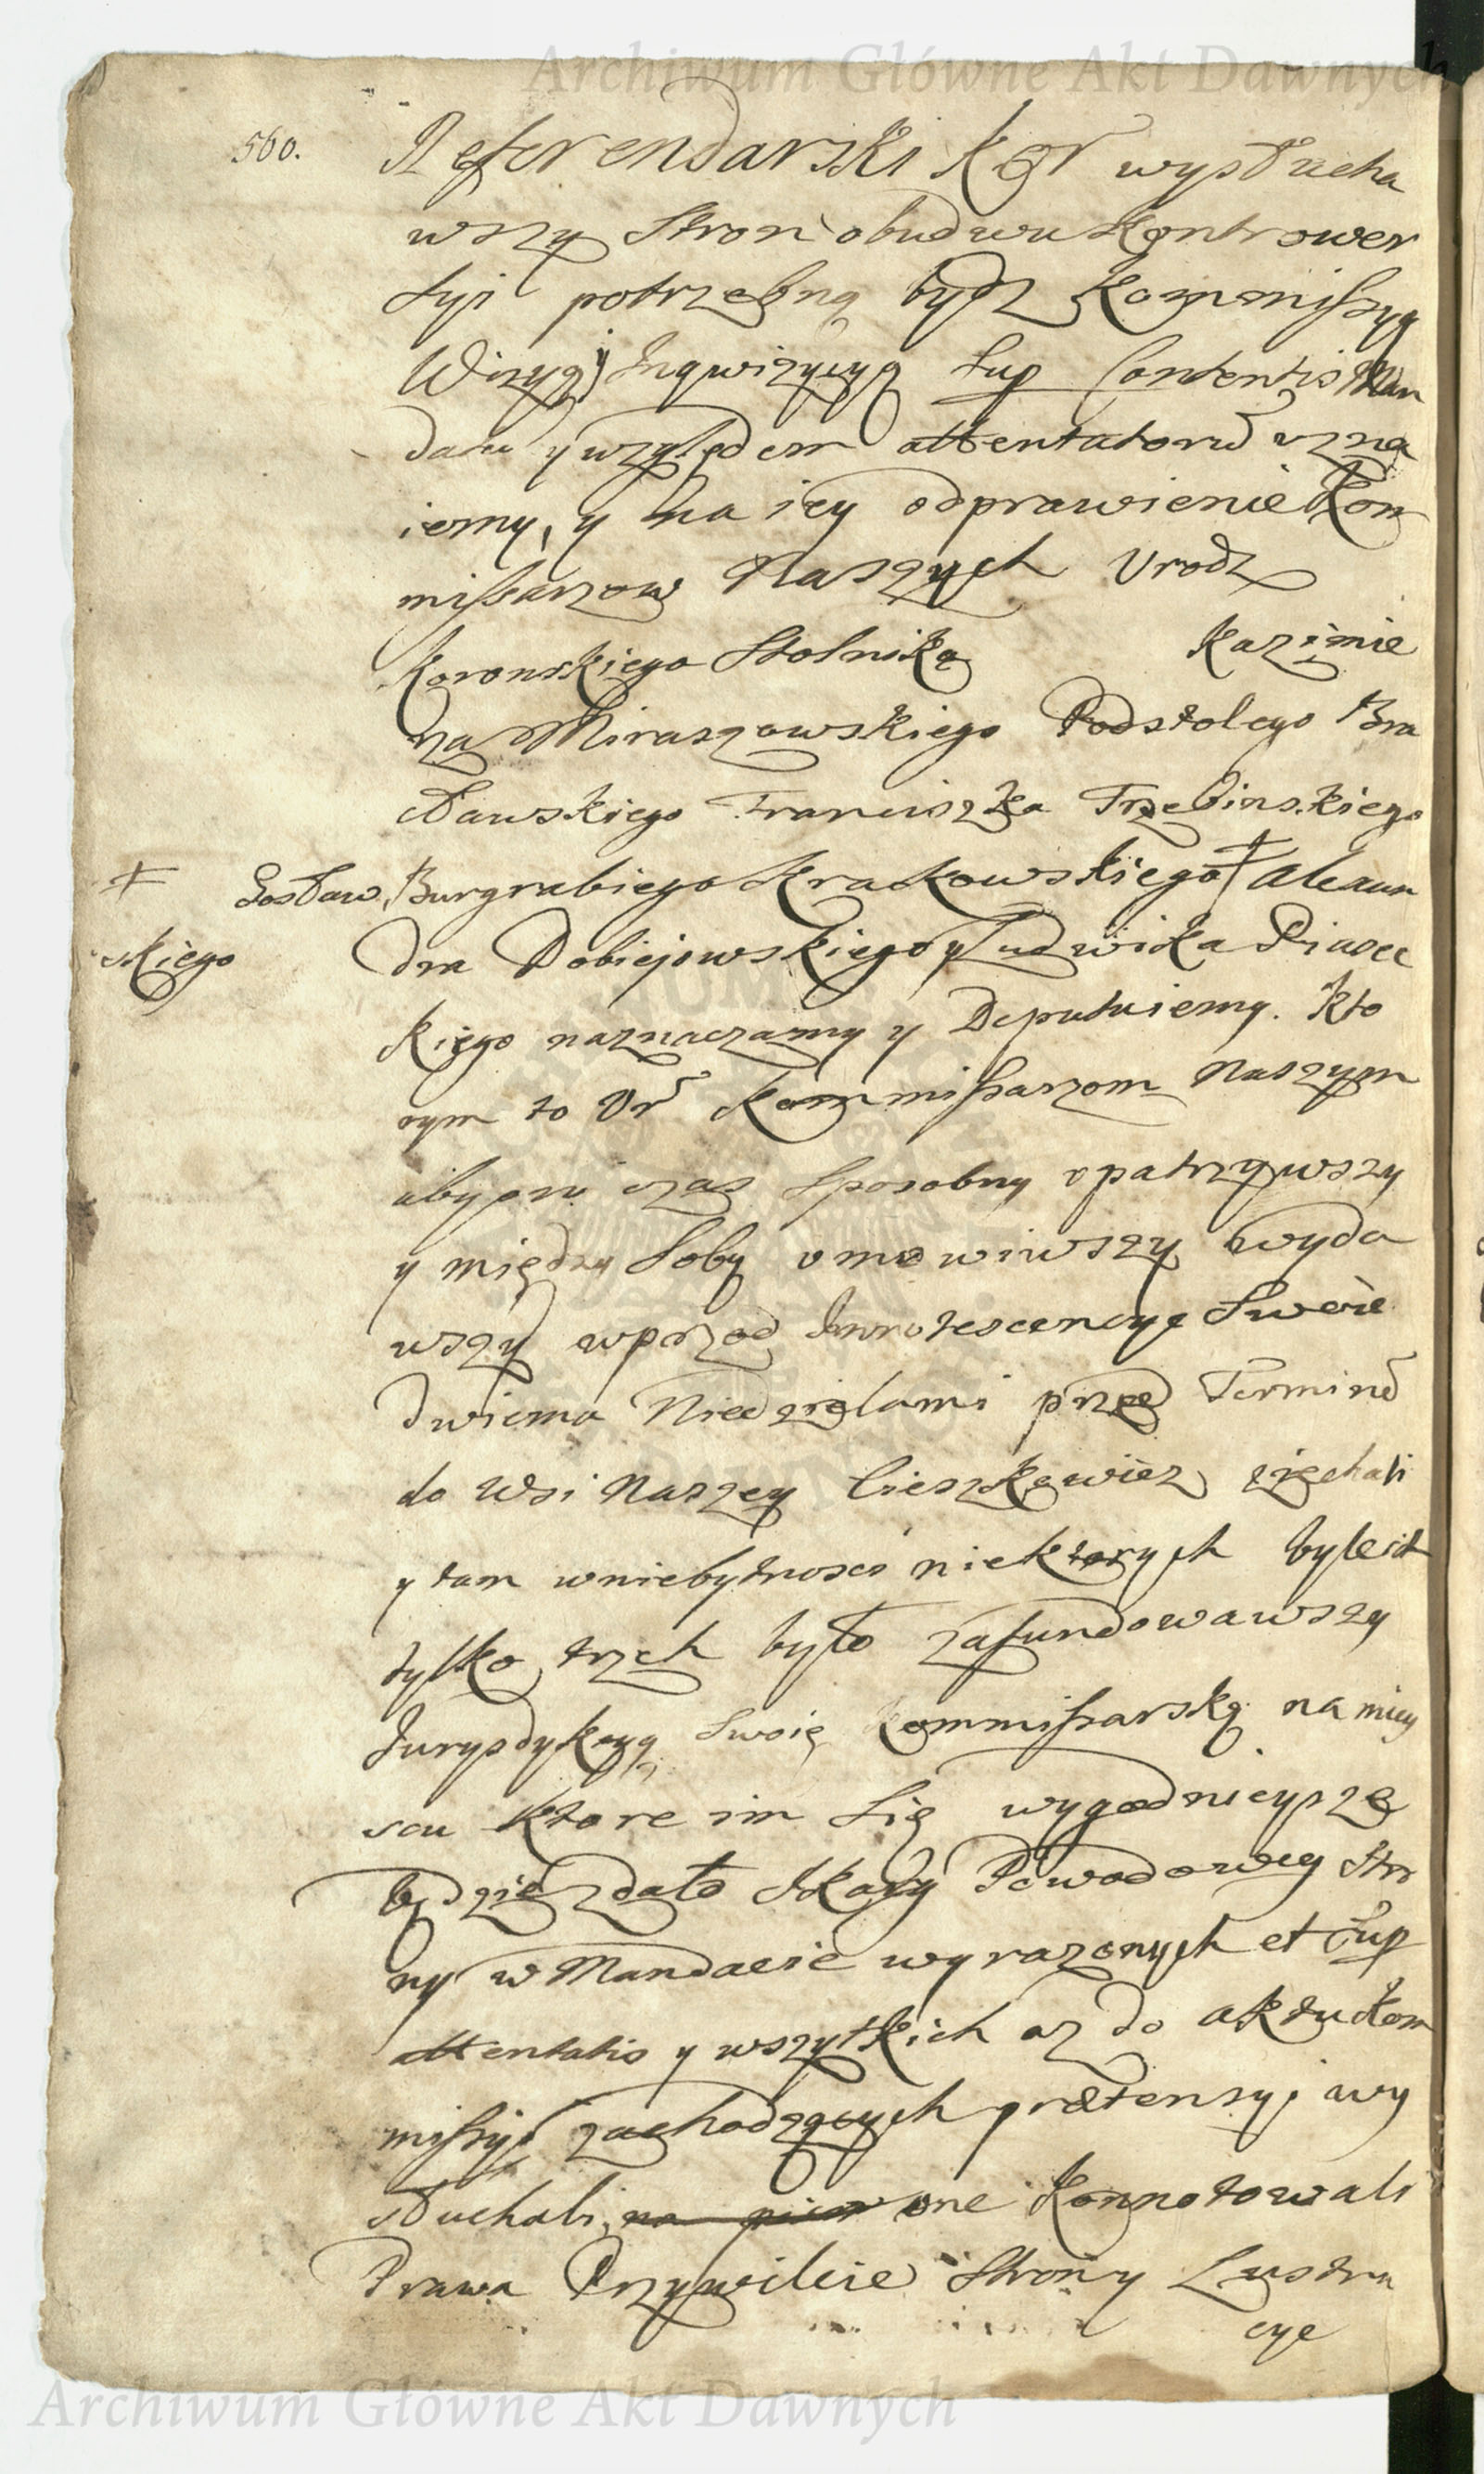 Archiwum Główne Akt Dawnych
560.
Referendarski Kor wysłucha
wszy Stron obudwu Kontrower
syi potrzebną bydz Kommissyą
Wizyą y Inqwizycyą sup Contentis Man
datu y względem attentatorũ uzna
iemy, y na iey odprawienie Kom
missarzow Naszych Urodz
Koronskiego Stolnika Kazimie
rza Miraszowskiego Podstolego Bra
cławskiego Franciszka Trzebinskiego
‡ Gosław, Burgrabiego Krakowskiego ‡ Alexan
skiego dra Dobiejowskiego y Ludwika Piasec
kiego naznaczamy y Deputuiemy. Kto
rym to Ur Kommissarzom Naszym
aby czas sposobny upatrzywszy
y między soby umowiwszy wyda
wszy wprzod Innotescencye Swoie
dwiema Niedzielami przed Terminẽ
do Wsi Naszey Cieszkowiez ziechali
y tam w niebytnosci niektorych byle ich
tylko trzech było zafundowawszy
Jurysdykcyą Swoię Kommissarską na miey
scu ktore im się wygodnieysze
będzie zdało skargi Powodowey Stro
ny w Mandacie wyrazonych et sup
attentatis y wszytkich az do aktu Kom
missyi zachodzących prætensyi wy
słuchali, one Konnotowali
Prawa Przywileie Strony Lustra
cye
Archiwum Główne Akt Dawnych